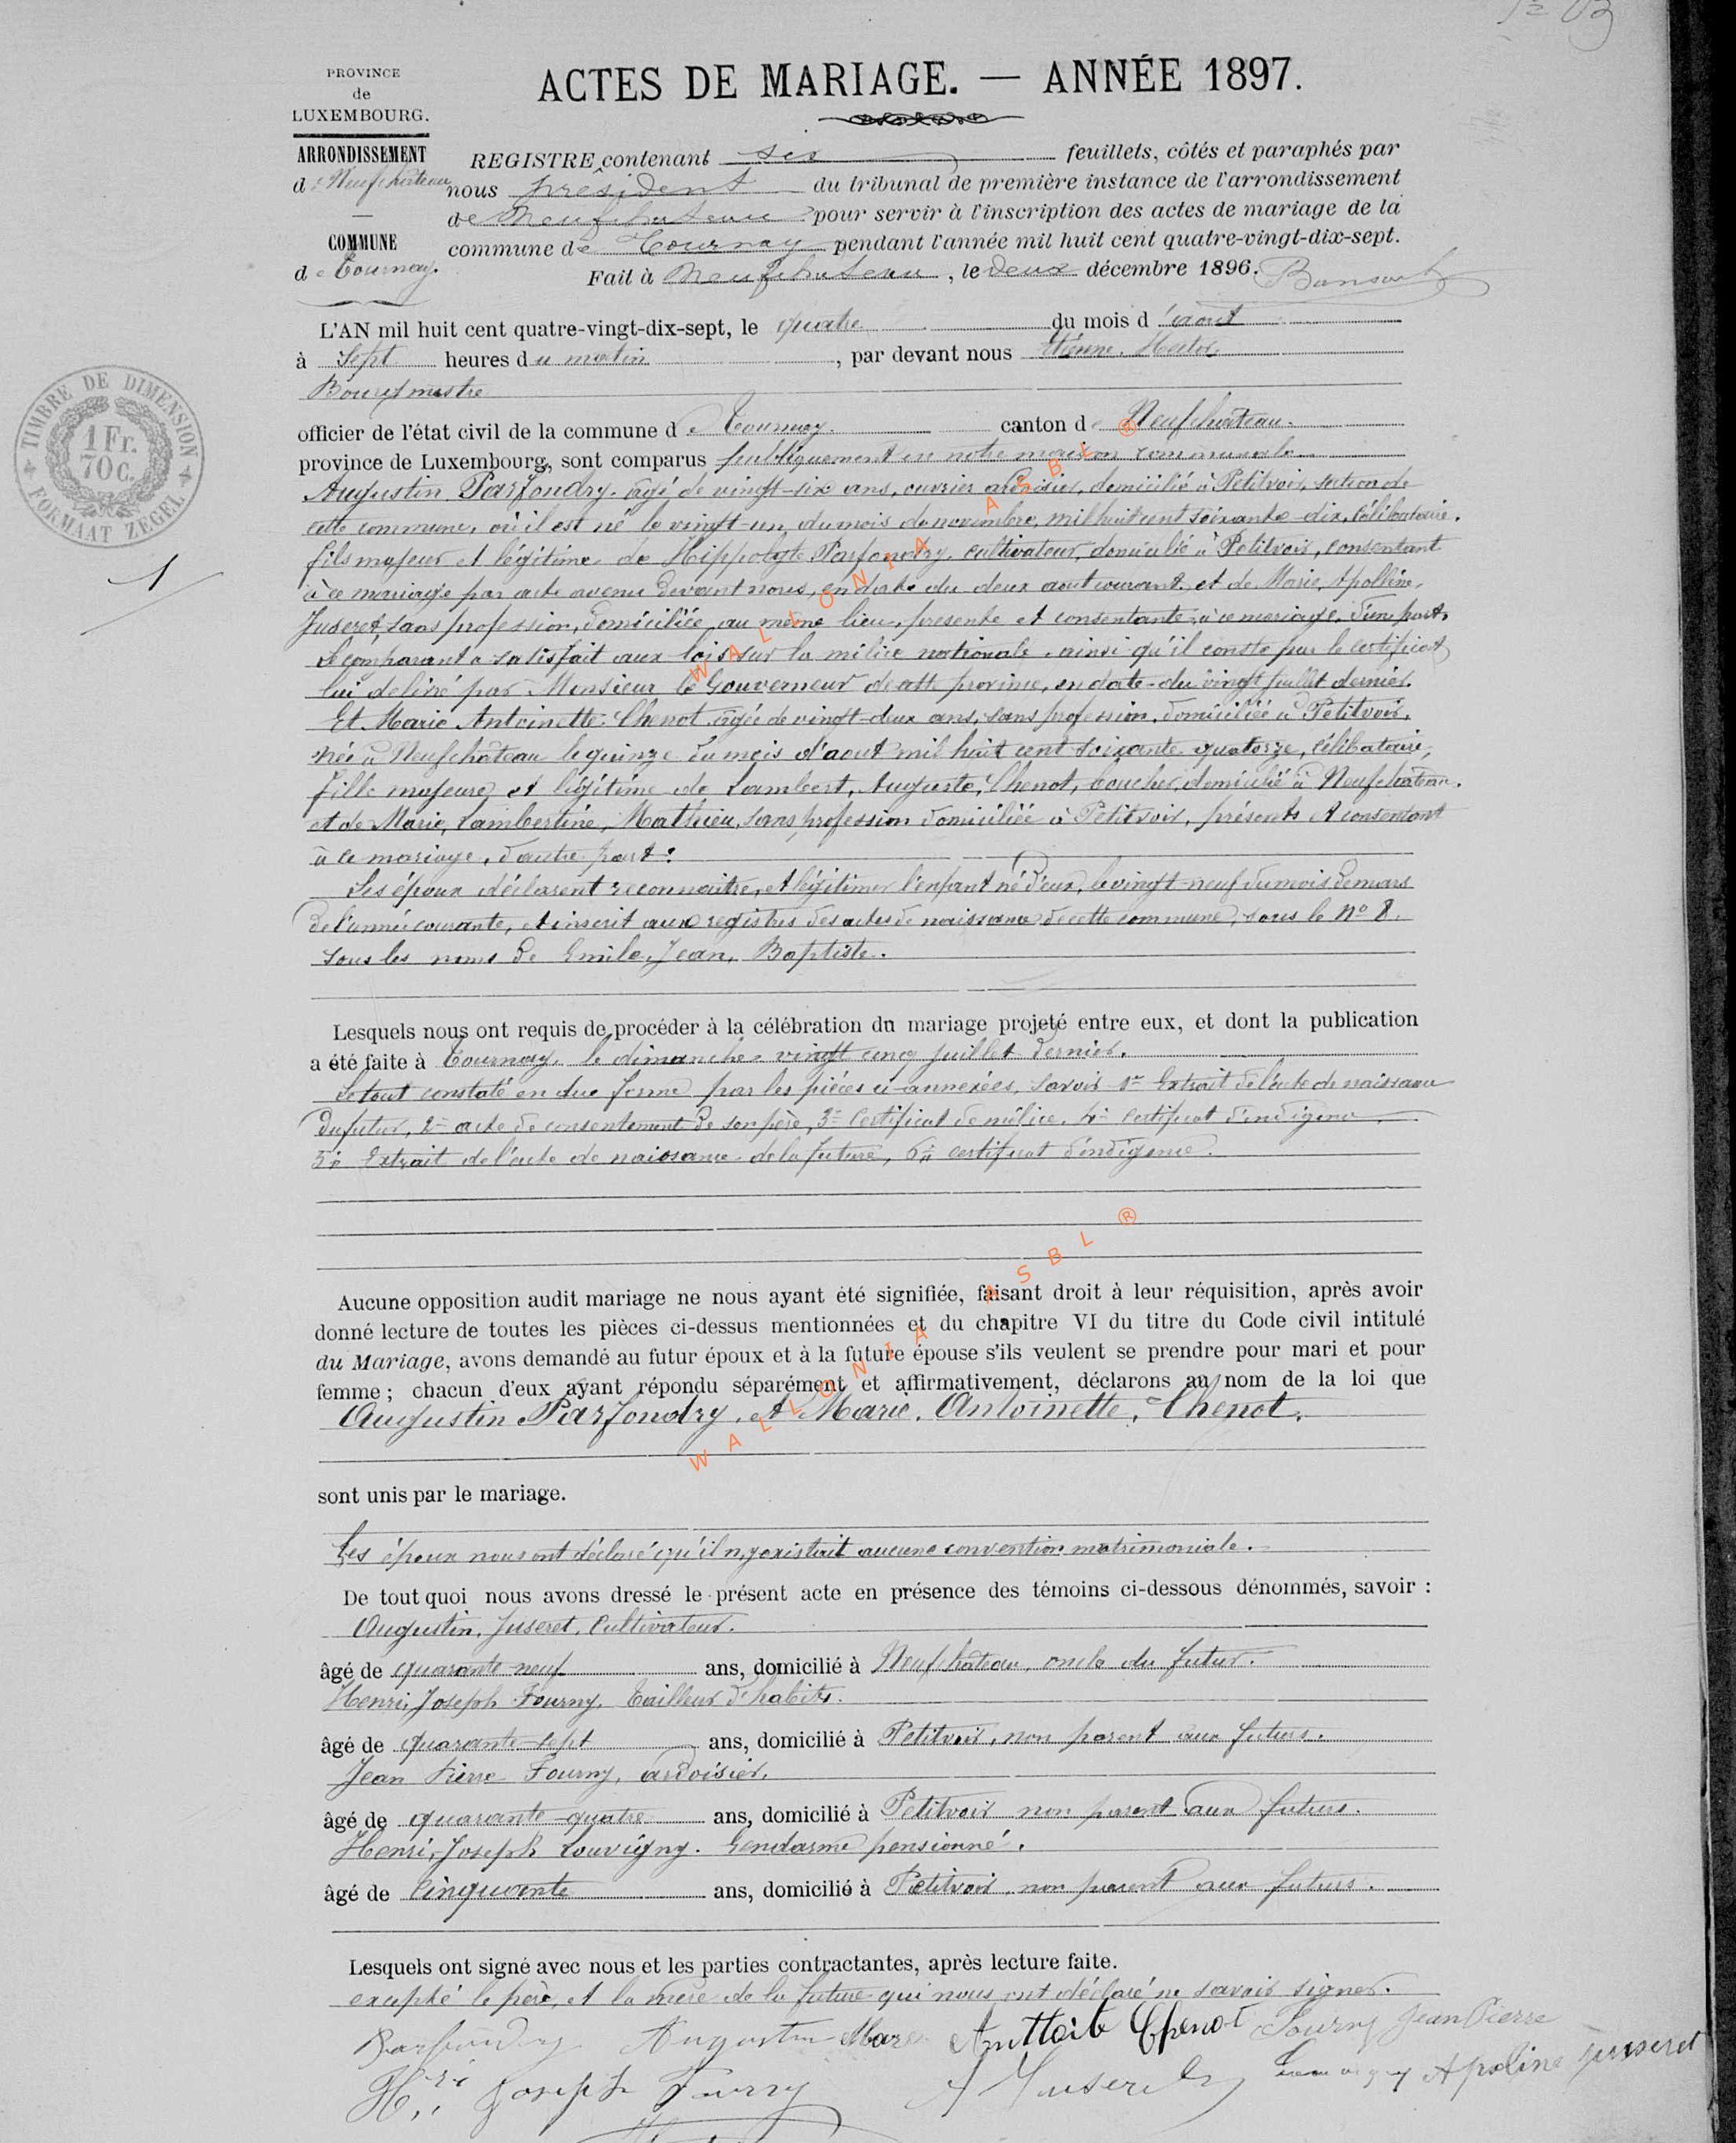 PROVINCE
de
LUXEMBOURG.
ARRONDISSEMENT
de Neufchâteau
COMMUNE
de Tournay.
ACTES DE MARIAGE. — ANNÉE 1897.
REGISTRE contenant six feuillets, côtés et paraphés par
nous président du tribunal de première instance de l'arrondissement
de Neufchateau pour servir à l'inscription des actes de mariage de la
commune de Tournay pendant l'année mil huit cent quatre-vingt-dix-sept.
Fait à Neufchateau, le deux décembre 1896.
TIMBRE DE DIMENSION
1 Fr.
70 c.
FORMAAT ZEGEL
1
L'AN mil huit cent quatre-vingt-dix-sept, le quatre du mois d'aout
à sept heures du matin, par devant nous Etienne, Hector,
Bourgmestre
officier de l'état civil de la commune de Tournay. canton de Neufchâteau.
province de Luxembourg, sont comparus publiquement en notre maison communale
Augustin Parfondry, âgé de vingt-six ans, ouvrier ardoisier, domicilié à Petitvoir, section de
cette commune, où il est né le vingt-un du mois de novembre mil huit cent soixante-dix, célibataire.
fils majeur et légitime de Hippolyte Parfondry, cultivateur, domicilié à Petitvoir, consentant
à ce mariage par acte avenu devant nous, en date du deux aout courant et de Marie, Apolline,
Juseret, sans profession, domiciliée au même lieu, présente et consentante à ce mariage, d'une part.
Le comparant a satisfait aux lois sur la milice nationale, ainsi qu'il conste par le certificat
lui délivré par Monsieur le Gouverneur de cette province, en date du vingt juillet dernier.
Et Marie Antoinette Chenot âgée de vingt-deux ans, sans profession, domiciliée à Petitvoir,
née à Neufchâteau le quinze du mois d'aout mil huit cent soixante quatorze, célibataire,
fille majeure et légitime de Lambert, Auguste, Chenot, boucher, domicilié à Neufchâteau.
et de Marie, Lambertine, Mathieu, sans profession domiciliée à Petitvoir, présents et consentant
à ce mariage, d'autre part.
Les époux déclarent reconnaitre, et légitimer l'enfant né d'eux, le vingt-neuf du mois de mars
de l'année courante, et inscrit aux registres des actes de naissance de cette commune, sous le No 8.
sous les noms de Emile, Jean, Baptiste.
Lesquels nous ont requis de procéder à la célébration du mariage projeté entre eux, et dont la publication
a été faite à Tournay, le dimanche vingt cinq juillet dernier.
Le tout constaté en due forme par les pièces ci-annexées, savoir 1° Extrait de l'acte de naissance
du futur, 2° acte de consentement de son père, 3° Certificat de milice, 4° Certificat d'indigence
5° Extrait de l'acte de naissance de la future, 6° certificat d'indigence.
Aucune opposition audit mariage ne nous ayant été signifiée, faisant droit à leur réquisition, après avoir
donné lecture de toutes les pièces ci-dessus mentionnées et du chapitre VI du titre du Code civil intitulé
du Mariage, avons demandé au futur époux et à la future épouse s'ils veulent se prendre pour mari et pour
femme ; chacun d'eux ayant répondu séparément et affirmativement, déclarons au nom de la loi que
Augustin Parfondry, et Marie, Antoinette, Chenot,
sont unis par le mariage.
Les époux nous ont déclaré qu'il n'y existait aucune convention matrimoniale.
De tout quoi nous avons dressé le présent acte en présence des témoins ci-dessous dénommés, savoir :
Augustin, Juseret, Cultivateur.
âgé de quarante neuf ans, domicilié à Neufchâteau, oncle du futur.
Henri, Joseph Fourny, tailleur d'habits.
âgé de quarante-sept ans, domicilié à Petitvoir, non parent aux futurs.
Jean Pierre Fourny, ardoisier,
âgé de quarante-quatre ans, domicilié à Petitvoir non parent aux futurs.
Henri, Joseph Louvigny. Gendarme pensionné.
âgé de Cinquante ans, domicilié à Petitvoir, non parent aux futurs.
Lesquels ont signé avec nous et les parties contractantes, après lecture faite.
excepté le père, et la mère de la future qui nous ont déclaré ne savoir signer.
Parfondry Augustin Marie Chenot Fourny Jean Pierre
Hri Joseph Fourny A Juseret Louvigny Apoline Juseret
WALLONIA ASBL ®
WALLONIA ASBL ®